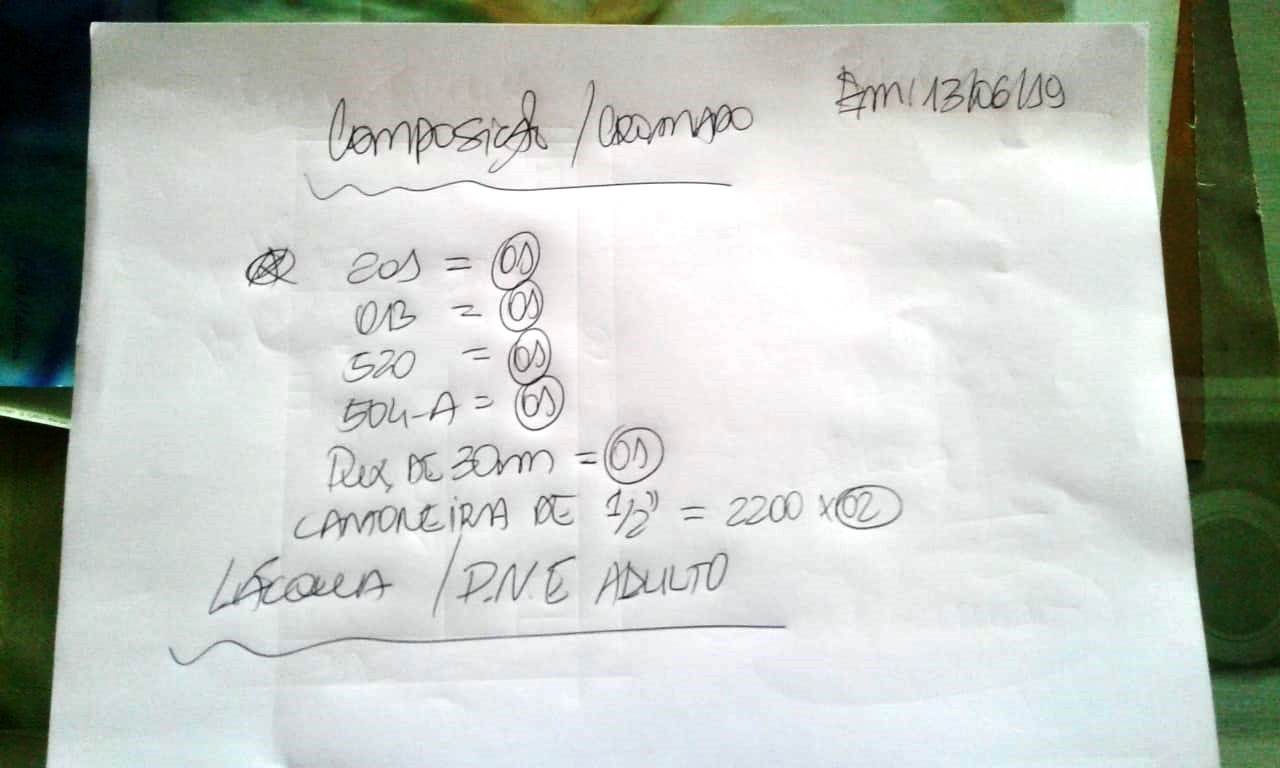 Em, 13/06/19
Composição / CROMADO
201 = 01
013 = 01
520 = 01
504-A = 01
DE 30mm = 01
CANTONEIRA DE 1/2" = 2200 x 02
/ P.N.E ADULTO